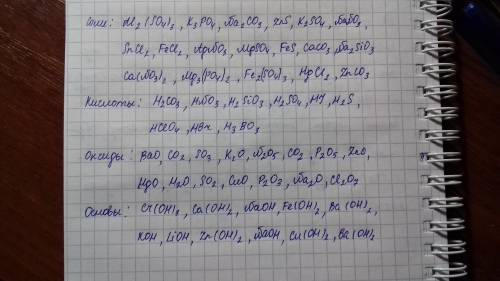 Соли: Al2(SO4)3, K3PO4, Na2CO3, ZnS, K2SO4, NaNO3,
SnCl2, FeCl2, AgNO3, MgSO4, FeS, CaCO3, Na2SiO3
Ca(NO3)2, Mg3(PO4)2, Fe2(SO4)3, HgCl2, ZnCO3
Кислоты: H2CO3, HNO3, H2SiO3, H2SO4, HI, H2S,
HClO4, HBr, H3BO3
Оксиды: BaO, CO2, SO3, K2O, N2O5, CO2, P2O5, ZnO,
HgO, H2O, SO2, CuO, P2O3, Na2O, Cl2O7
Основы: Cr(OH)3, Ca(OH)2, NaOH, Fe(OH)2, Ba(OH)2,
KOH, LiOH, Zn(OH)2, NaOH, Cu(OH)2, Ba(OH)2